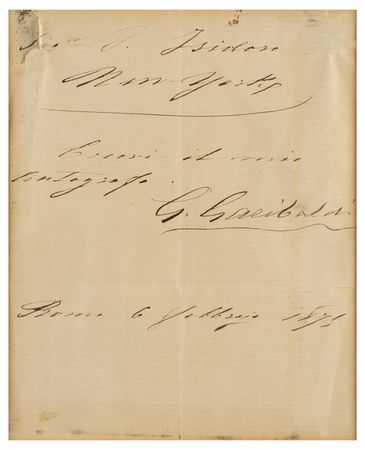 Sigr J. Isidoro
New-York
Eccovi il mio
autografo.
G. Garibaldi
Roma 6 febbraio 1875